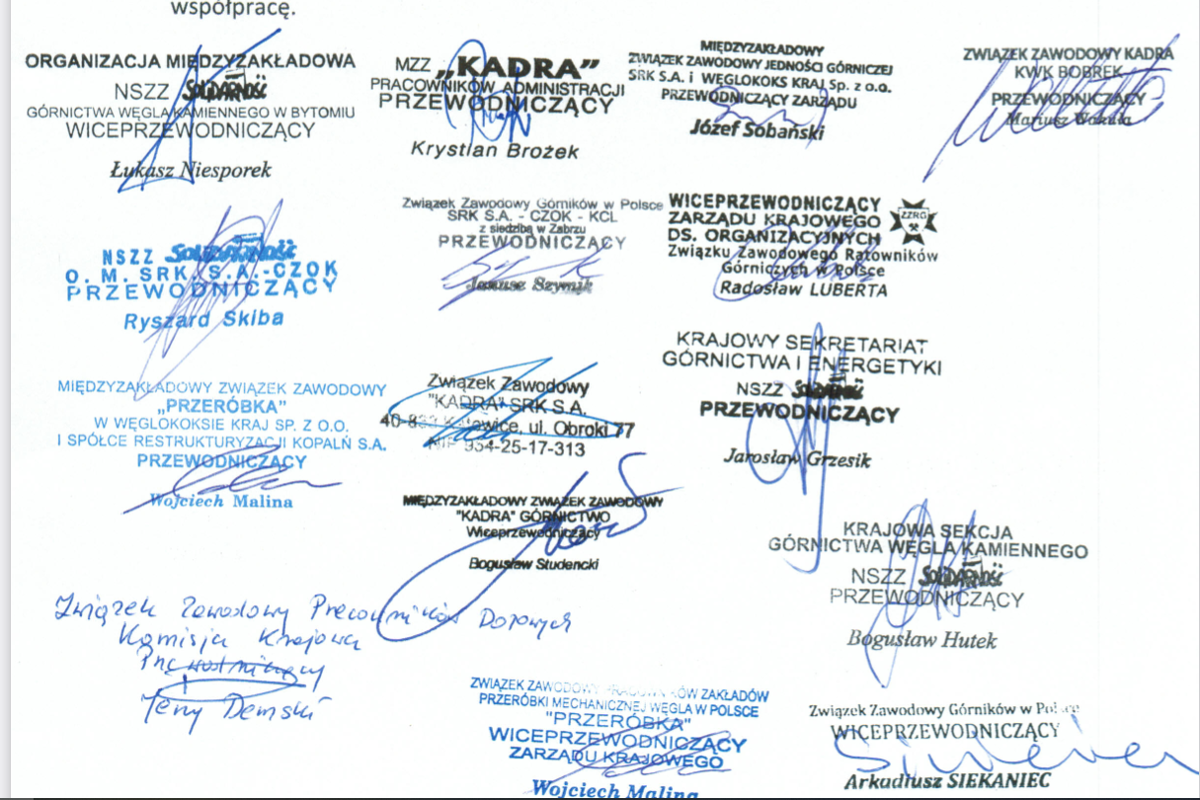 współpracę.
ORGANIZACJA MIĘDZYZAKŁADOWA
NSZZ Solidarność
GÓRNICTWA WĘGLA KAMIENNEGO W BYTOMIU
WICEPRZEWODNICZĄCY
Łukasz Niesporek
MZZ „KADRA”
PRACOWNIKÓW ADMINISTRACJI
PRZEWODNICZĄCY
Krystian Brożek
MIĘDZYZAKŁADOWY
ZWIĄZEK ZAWODOWY JEDNOŚCI GÓRNICZEJ
SRK S.A. i WĘGLOKOKS KRAJ Sp. z o.o.
PRZEWODNICZĄCY ZARZĄDU
Józef Sobański
ZWIĄZEK ZAWODOWY KADRA
KWK BOBREK
PRZEWODNICZĄCY
Mariusz
NSZZ Solidarność
O. M. SRK. S.A.-CZOK
PRZEWODNICZĄCY
Ryszard Skiba
Związek Zawodowy Górników w Polsce
SRK S.A. - CZOK - KCL
z siedzibą w Zabrzu
PRZEWODNICZĄCY
Janusz Szymik
WICEPRZEWODNICZĄCY
ZARZĄDU KRAJOWEGO
DS. ORGANIZACYJNYCH
Związku Zawodowego Ratowników
Górniczych w Polsce
Radosław LUBERTA
ZZRG
KRAJOWY SEKRETARIAT
GÓRNICTWA I ENERGETYKI
NSZZ Solidarność
PRZEWODNICZĄCY
Jarosław Grzesik
MIĘDZYZAKŁADOWY ZWIĄZEK ZAWODOWY
„PRZERÓBKA”
W WĘGLOKOKSIE KRAJ SP. Z O.O.
I SPÓŁCE RESTRUKTURYZACJI KOPALŃ S.A.
PRZEWODNICZĄCY
Wojciech Malina
Związek Zawodowy
"KADRA" SRK S.A.
Katowice, ul. Obroki 77
NIP 954-25-17-313
MIĘDZYZAKŁADOWY ZWIĄZEK ZAWODOWY
"KADRA" GÓRNICTWO
Wiceprzewodniczący
Bogusław Studencki
KRAJOWA SEKCJA
GÓRNICTWA WĘGLA KAMIENNEGO
NSZZ Solidarność
PRZEWODNICZĄCY
Bogusław Hutek
Związek Zawodowy Pracowników Dołowych
Komisja Krajowa
Jerzy Demski
ZWIĄZEK ZAWODOWY PRACOWNIKÓW ZAKŁADÓW
PRZERÓBKI MECHANICZNEJ WĘGLA W POLSCE
"PRZERÓBKA"
WICEPRZEWODNICZĄCY
ZARZĄDU KRAJOWEGO
Wojciech Malina
Związek Zawodowy Górników w Polsce
WICEPRZEWODNICZĄCY
Arkadiusz SIEKANIEC